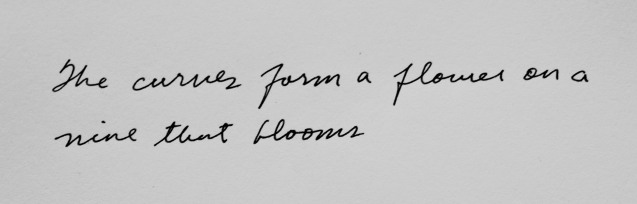 The curves form a flower on a
vine that blooms